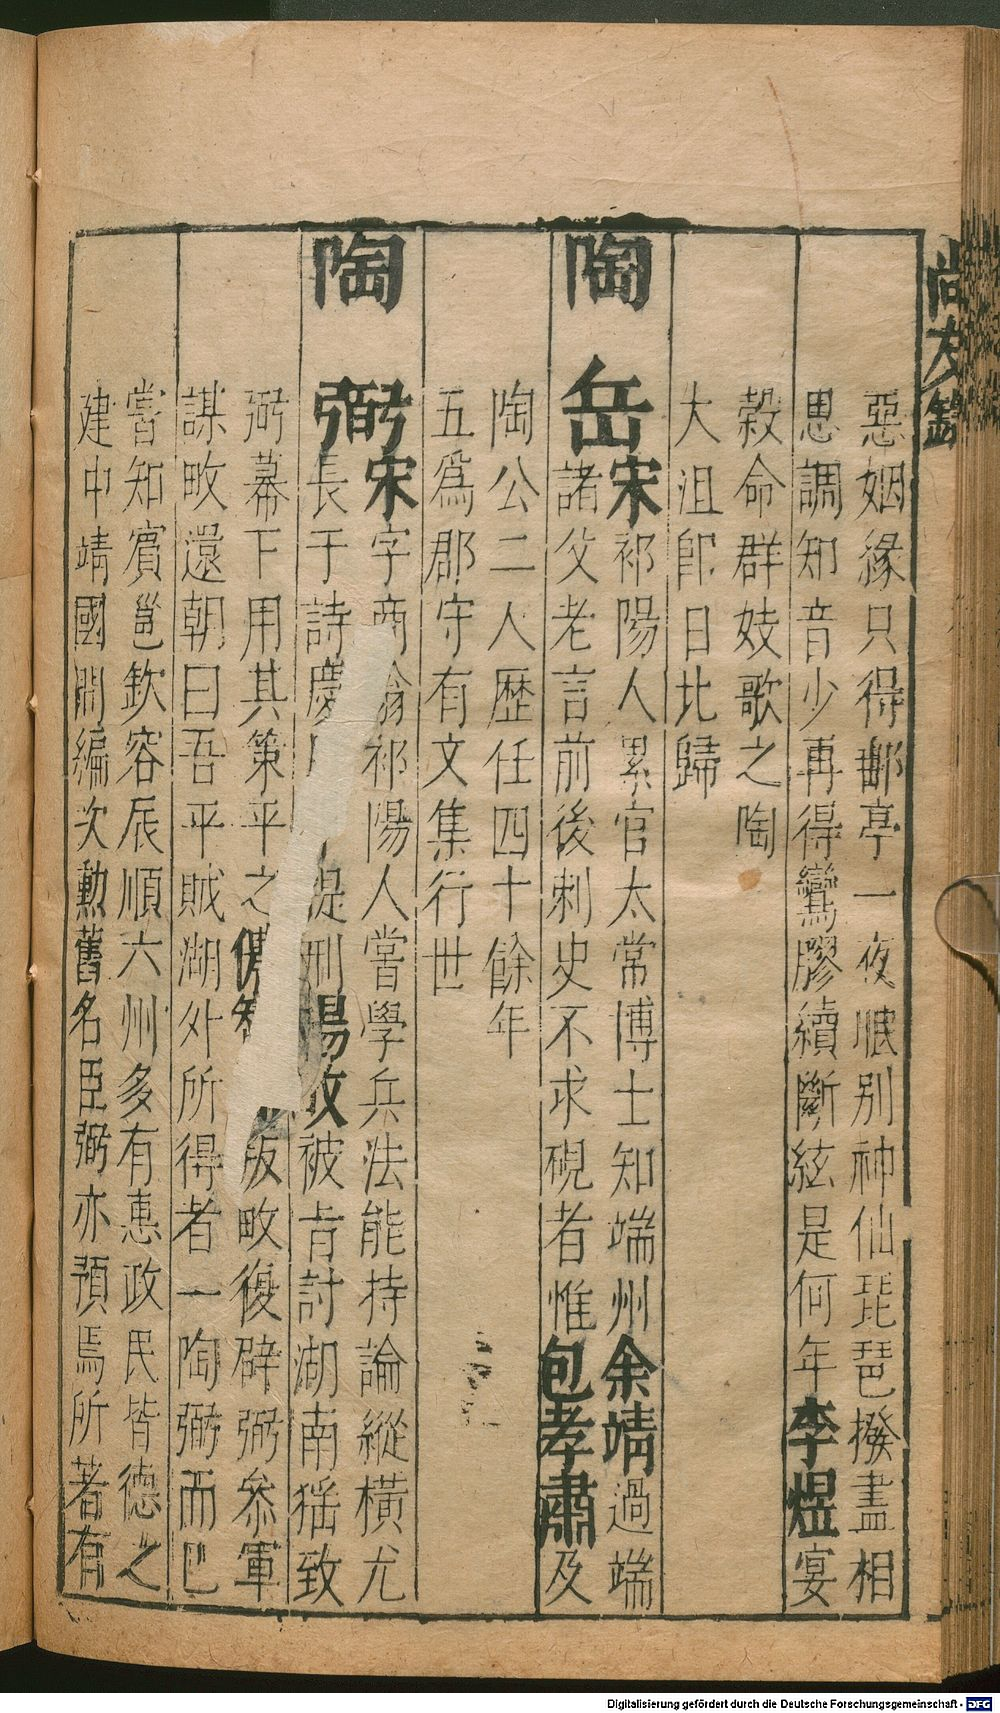 尚友錄
惡姻緣只得郵亭一夜眠別神仙琵琶撥盡相
思調知音少再得鸞膠續斷絃是何年李煜宴
榖命群妓歌之陶
大沮卽日北歸
陶岳宋祁陽人累官太常博士知端州余靖過端
諸父老言前後刺史不求硯者惟包孝肅及
陶公二人歷任四十餘年
五爲郡守有文集行世
陶弼宋字商翁祁陽人嘗學兵法能持論縱橫尤
長于詩慶 提刑楊畋被旨討湖南猺致
弼幕下用其策平之儂智 叛畋復辟弼參軍
謀畋還朝曰吾平賊湖外所得者一陶弼而已
嘗知賓邕欽容辰順六州多有惠政民皆德之
建中靖國閒編次勳舊名臣弼亦預焉所著有
Digitalisierung gefördert durch die Deutsche Forschungsgemeinschaft - DFG